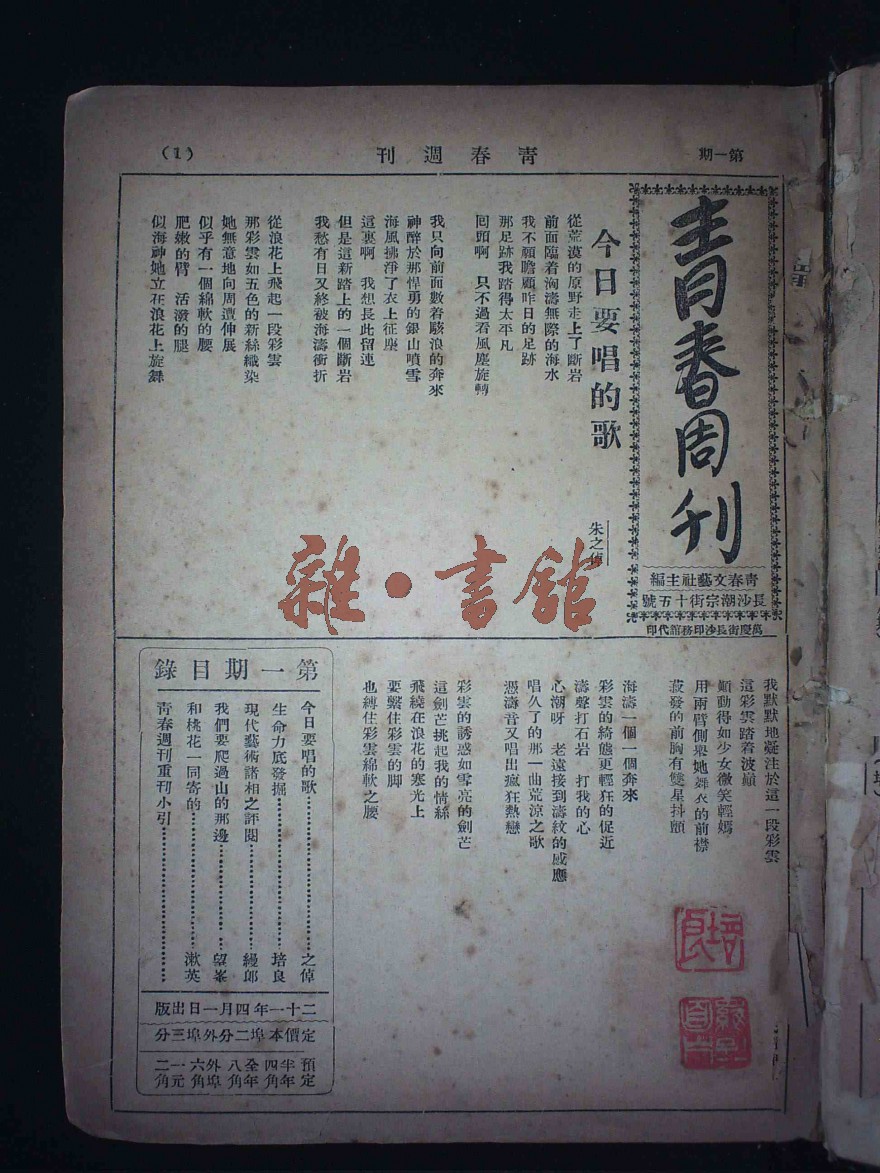 第一期
青春週刊
(1)
青春周刊
青春文藝社主編
長沙潮宗街十五號
萬慶街長沙印務館代印
今日要唱的歌
朱之倬
從荒漠的原野走上了斷岩
前面臨着洶濤無際的海水
我不願瞻顧昨日的足跡
那足跡我踏得太平凡
囘頭啊　只不過看風塵旋轉
我只向前面數着駭浪的奔來
神醉於那悍勇的銀山噴雪
海風拂淨了衣上征塵
這裏啊　我想長此留連
但是這新踏上的一個斷岩
我愁有日又終被海濤衝折
從浪花上飛起一段彩雲
那彩雲如五色的新絲織染
她無意地向周遭伸展
似乎有一個綿軟的腰
肥嫩的臂　活潑的腿
似海神她立在浪花上旋舞
我默默地凝注於這一段彩雲
這彩雲踏着波巔
顚動得如少女微笑輕嫣
用兩臂側舉她舞衣的前襟
蓓發的前胸有雙星抖顫
海濤一個一個奔來
彩雲的綺態更輕狂的促近
濤聲打石岩　打我的心
心潮呀　老遠接到濤紋的感應
唱久了的那一曲荒涼之歌
憑濤音又唱出瘋狂熱戀
彩雲的誘惑如雪亮的劍芒
這劍芒挑起我的情絲
飛繞在浪花的寒光上
要繫住彩雲的脚
也縛住彩雲綿軟之腰
第一期目錄
今日要唱的歌…………之倬
生命力底發掘…………培良
現代藝術諸相之評閱…………縵郎
我們要爬過山的那邊…………望峯
和桃花一同寄的…………漱英
青春週刊重刊小引…………
二十一年四月一日出版
定價本埠二分外埠三分
預定半年四角全年八角外埠六角一元二角
雜·書館
培良